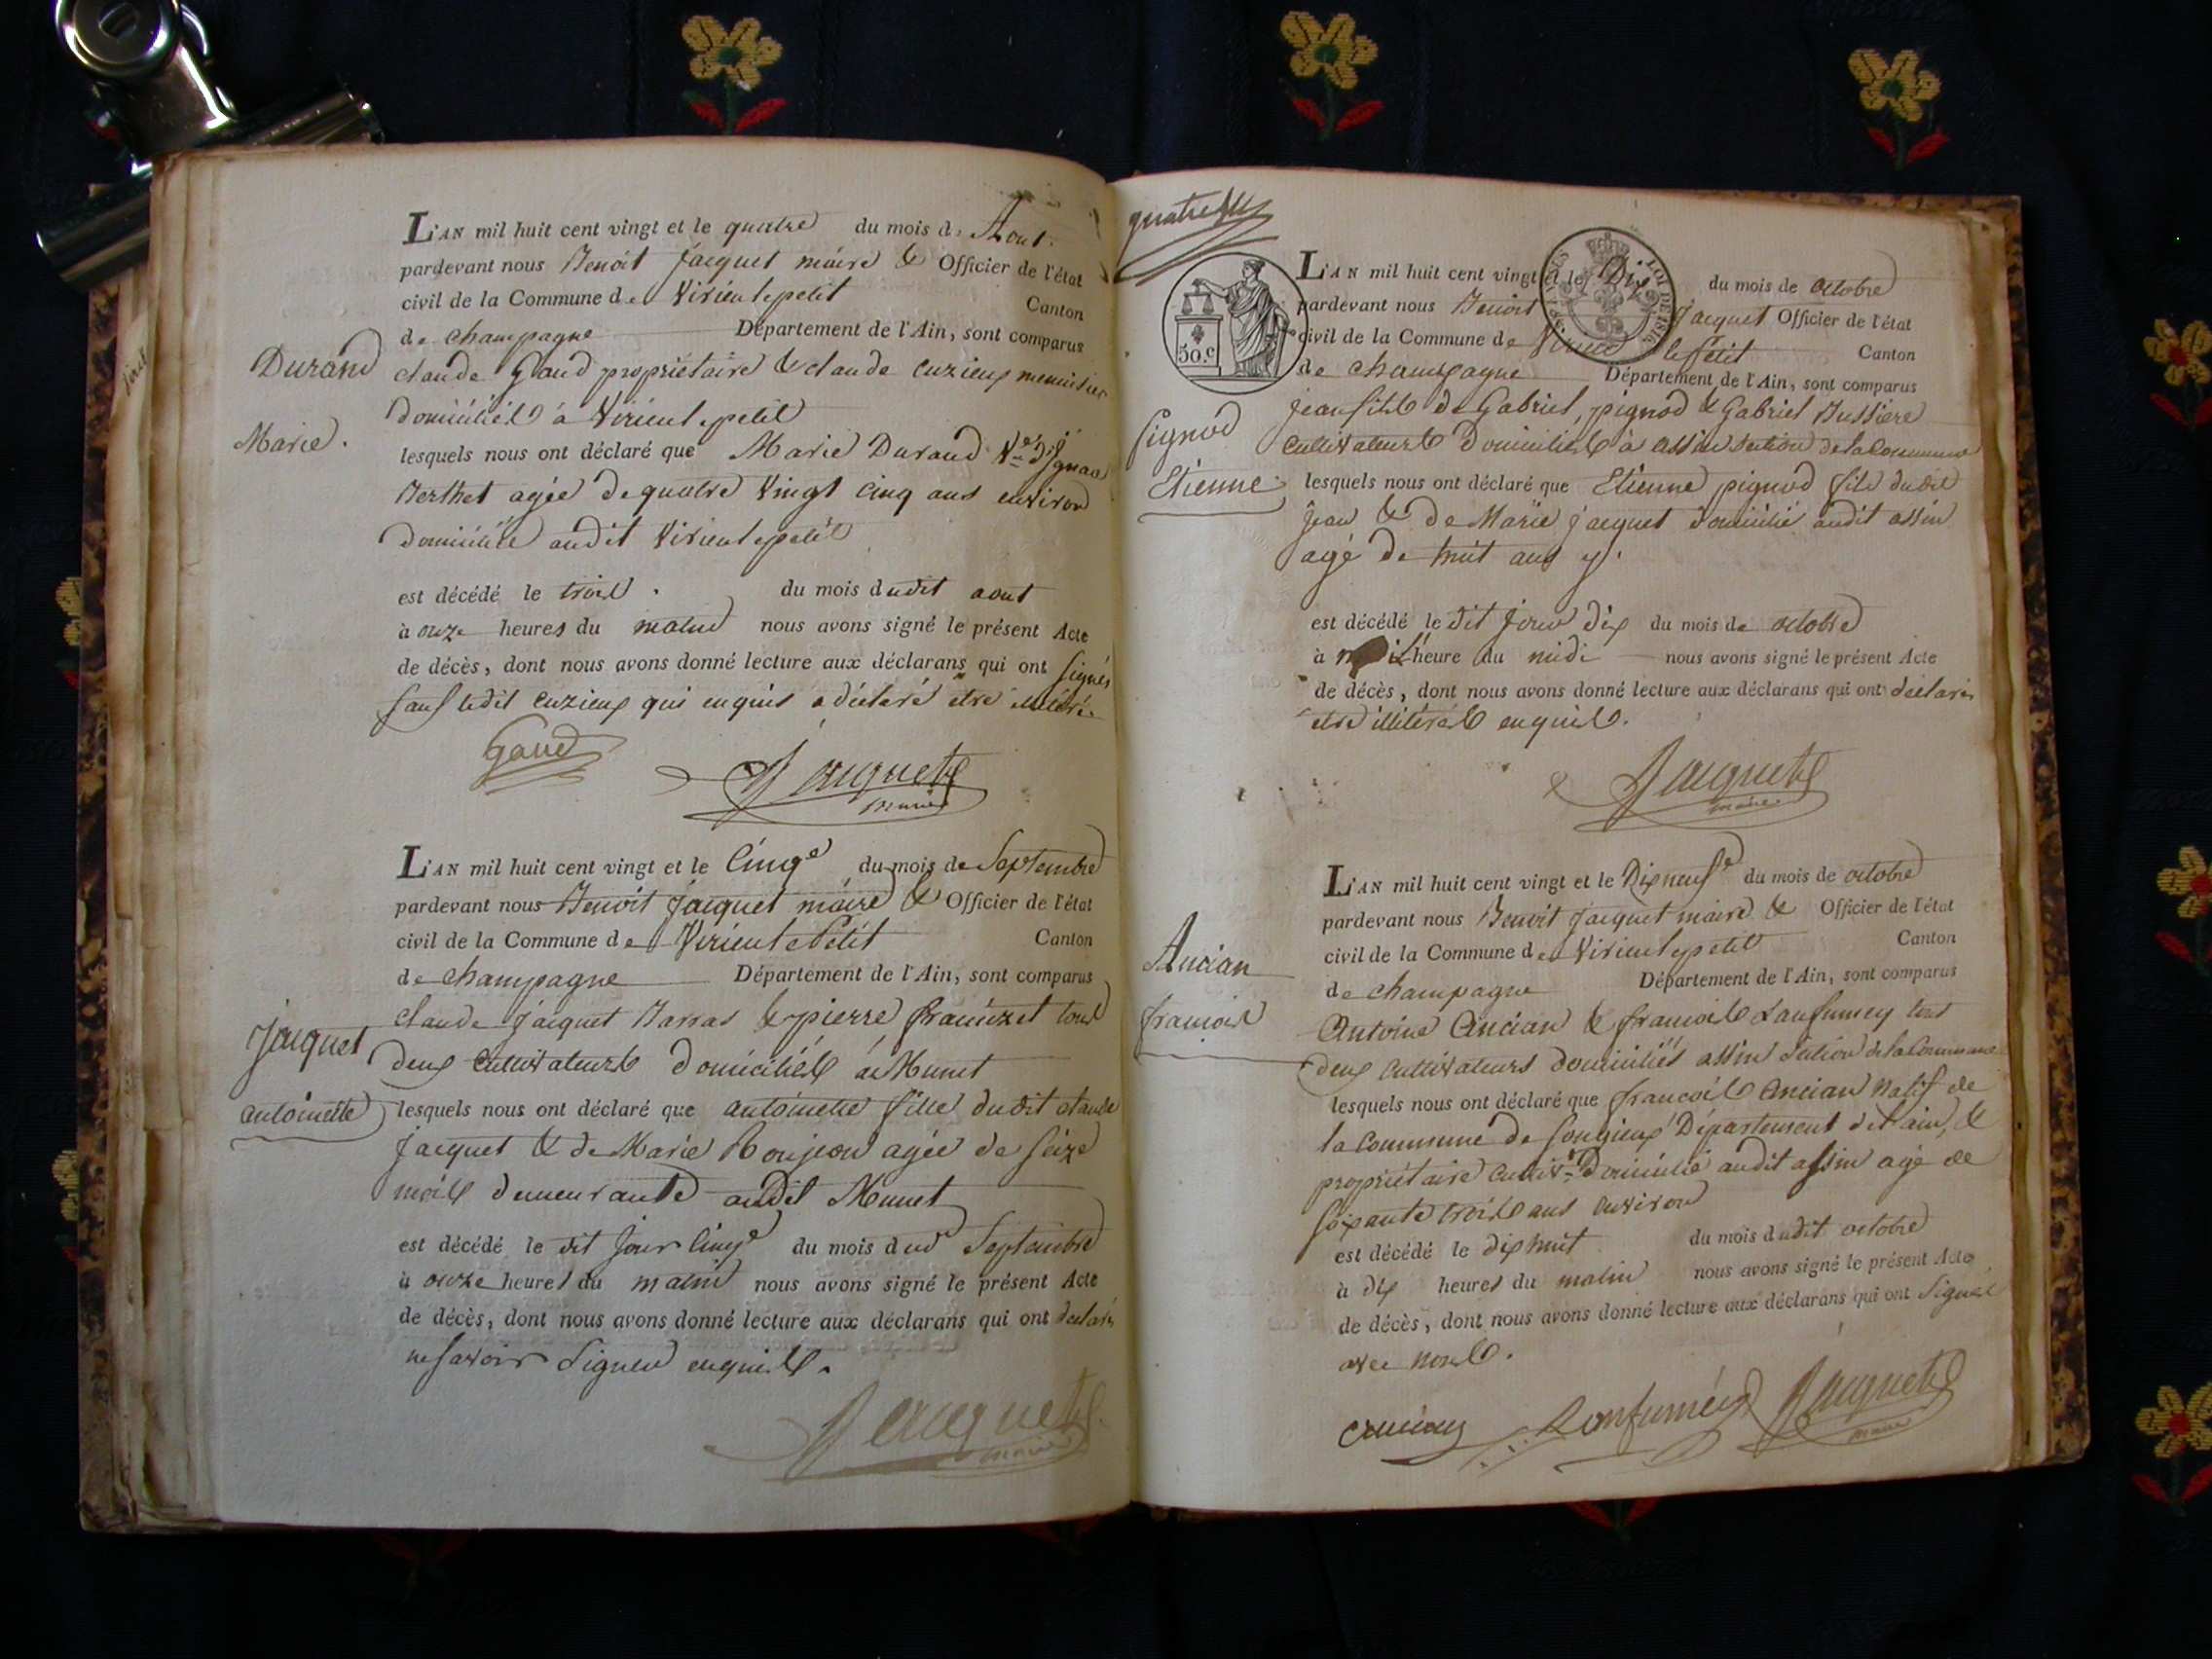 L'AN mil huit cent vingt et le quatre du mois de Aout
pardevant nous Benoit Jacquet maire & Officier de l'état
civil de la Commune de Virieu le petit Canton
de champagne Département de l'Ain, sont comparus
Durand claude Gaud propriétaire & claude cuzieux menuisier
domiciliés à Virieu le petit
Marie. lesquels nous ont déclaré que Marie Durand Ve d'ignace
Berthet agée de quatre vingt cinq ans environ
domiciliée audit Virieu le petit
est décédé le trois du mois dudit aout
à onze heures du matin nous avons signé le présent Acte
de décès, dont nous avons donné lecture aux déclarans qui ont signés
sauf ledit cuzieux qui enquis a déclaré etre illitéré.
Gaud
Jacquet
maire
L'AN mil huit cent vingt et le Cinqe du mois de Septembre
pardevant nous Benoit jacquet maire & Officier de l'état
civil de la Commune de Virieu le Petit Canton
de champagne Département de l'Ain, sont comparus
claude jacquet & pierre tous
Jacquet deux cultivateurs domiciliés à Munet
antoinette lesquels nous ont déclaré que antoinette fille dudit claude
jacquet & de Marie agée de seize
mois demeurante audit Munet
est décédé le dit jour cinqe du mois de Septembre
à onze heures du matin nous avons signé le présent Acte
de décès, dont nous avons donné lecture aux déclarans qui ont déclarés
ne savoir signer enquis.
Jacquet
maire
50.c
LOI DE 1816
L'AN mil huit cent vingt et le Dix du mois de octobre
pardevant nous Benoit Jacquet Officier de l'état
civil de la Commune de Virieu le petit Canton
de champagne Département de l'Ain, sont comparus
jean fils de Gabriel pignod & Gabriel Bussiere
Pignod cultivateurs domiciliés à assin section de la Commune
Etienne lesquels nous ont déclaré que Etienne pignod fils dudit
jean & de Marie jacquet domicilié audit assin
agé de huit ans
est décédé le dit jour dix du mois de octobre
à heure du midi nous avons signé le présent Acte
de décès, dont nous avons donné lecture aux déclarans qui ont déclarés
etre illitérés enquis.
Jacquet
maire
L'AN mil huit cent vingt et le Dixneufe du mois de octobre
pardevant nous Benoit jacquet maire & Officier de l'état
civil de la Commune de Virieu le petit Canton
Ancian de champagne Département de l'Ain, sont comparus
francois Antoine Ancian & francois Lanfumey tous
deux cultivateurs domiciliés assin section de la Commune
lesquels nous ont déclaré que francois Ancian natif de
la commune de Songieux Département de l'ain, &
propriétaire cultivr domicilié audit assin agé de
soixante trois ans environ
est décédé le dix huit du mois dudit octobre
à dix heures du matin nous avons signé le présent Acte
de décès, dont nous avons donné lecture aux déclarans qui ont signés
avec nous.
ancian Lonfuméy Jacquet
maire